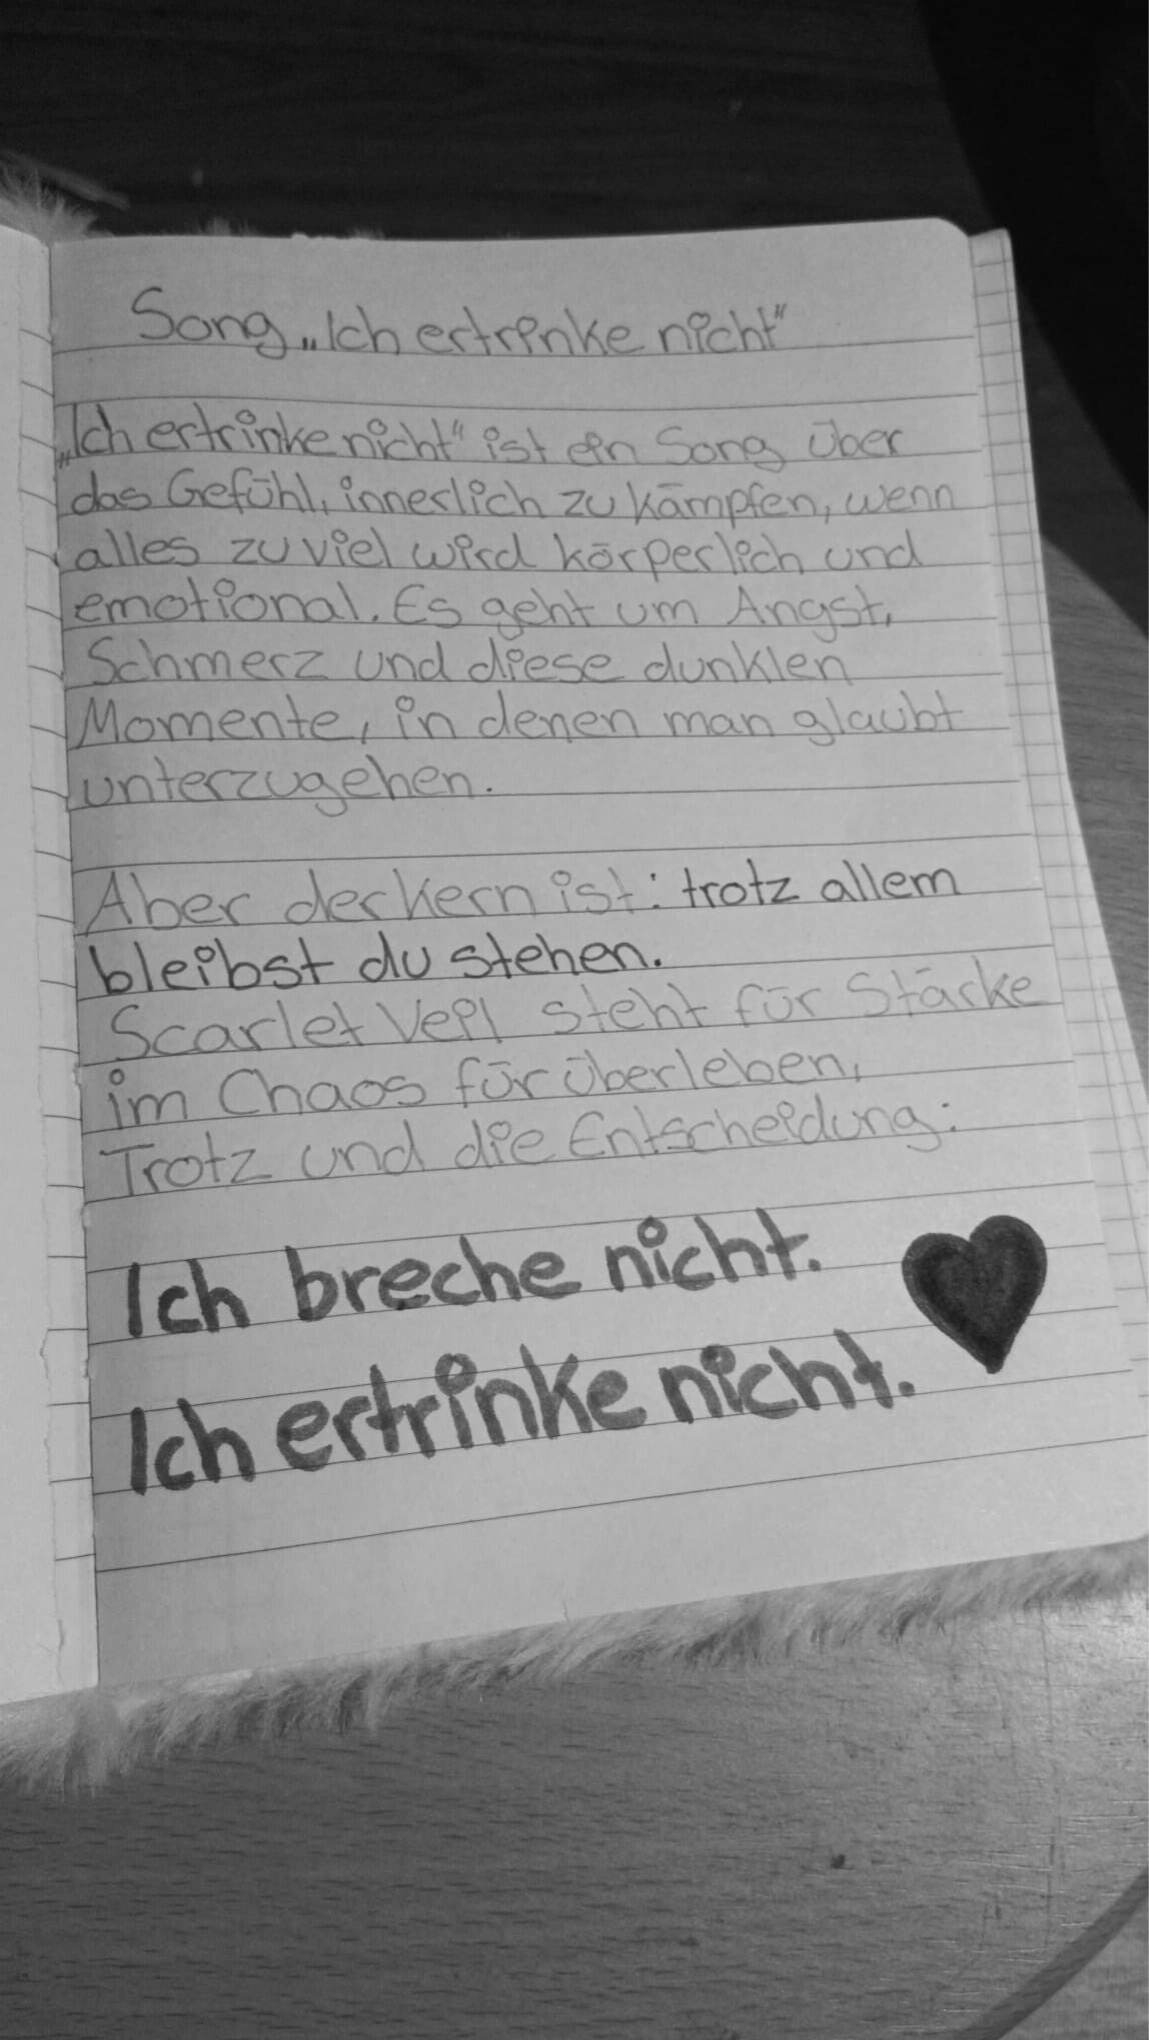 Song „Ich ertrinke nicht“
„Ich ertrinke nicht“ ist ein Song über
das Gefühl, innerlich zu kämpfen, wenn
alles zu viel wird körperlich und
emotional. Es geht um Angst,
Schmerz und diese dunklen
Momente, in denen man glaubt
unterzugehen.
Aber der Kern ist: trotz allem
bleibst du stehen.
Scarlet Veil steht für Stärke
im Chaos für überleben,
Trotz und die Entscheidung:
Ich breche nicht.
Ich ertrinke nicht.